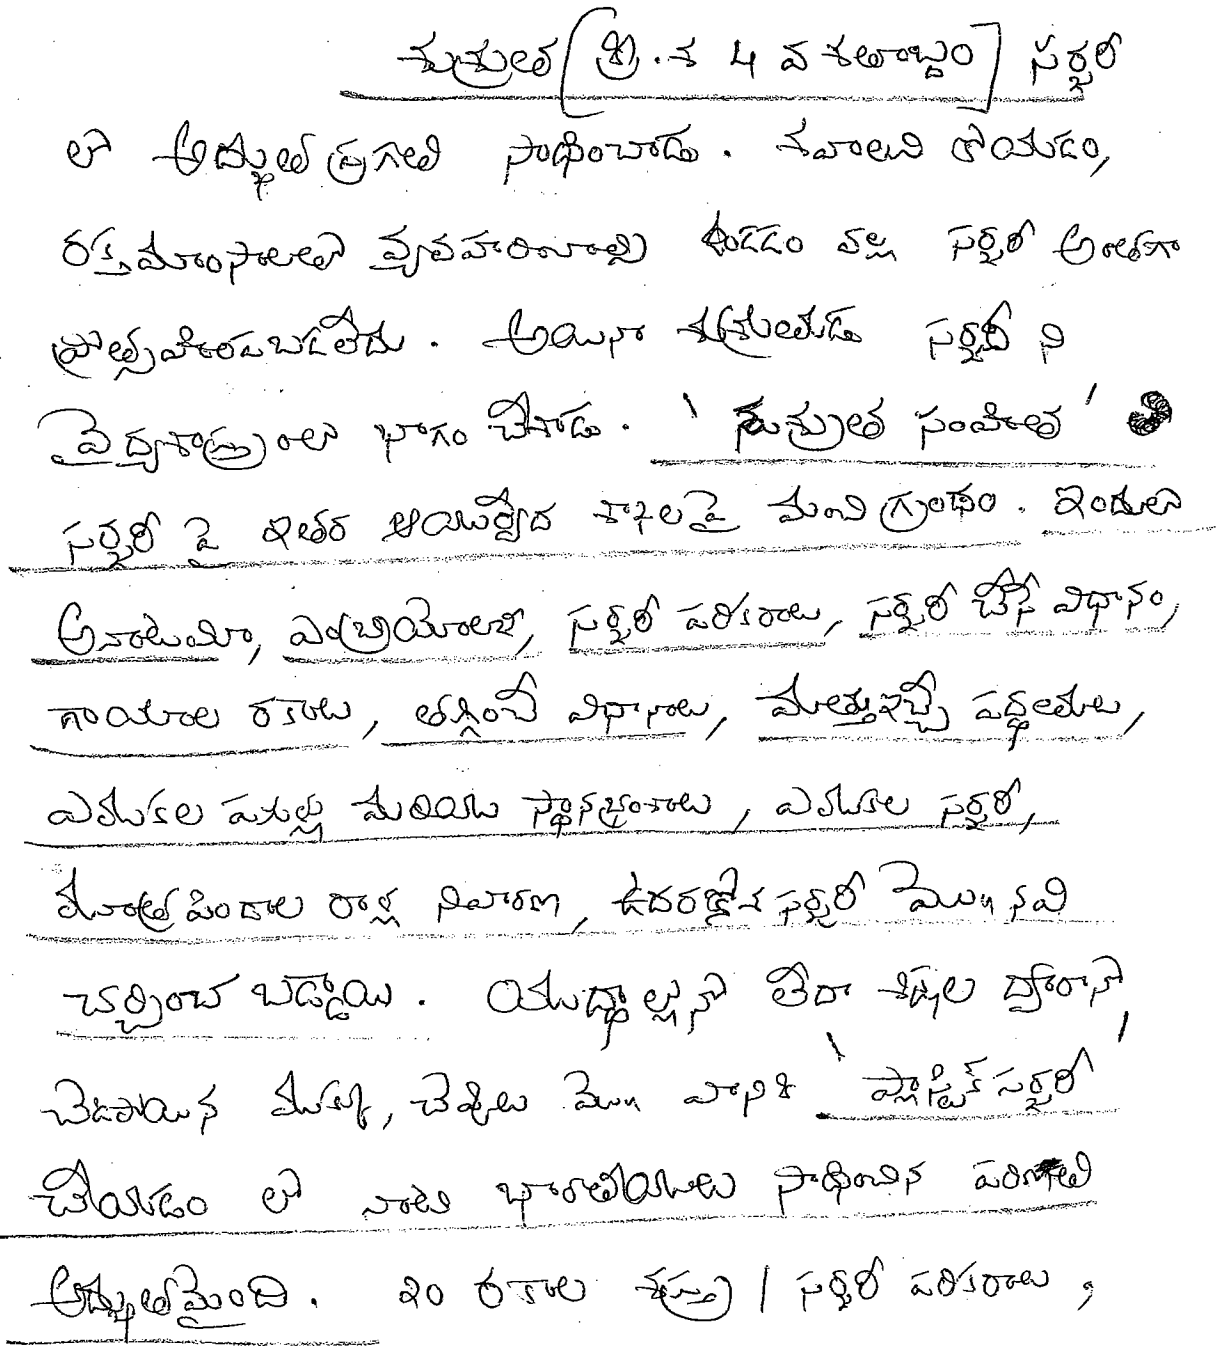 శుశ్రుత [క్రీ.శ 4 వ శతాబ్దం] సర్జరీ
లో అద్భుత ప్రగతి సాధించాడు. శవాలను కోయడం,
రక్తమాంసాలతో వ్యవహరించాల్సి ఉండడం వల్ల సర్జరీ అంతగా
ప్రోత్సహించబడలేదు. అయినా శుశ్రుతుడు సర్జరీ ని
వైద్యశాస్త్రంలో భాగం చేశాడు. 'శుశ్రుత సంహిత'
సర్జరీ పై ఇతర ఆయుర్వేద శాఖలపై మంచి గ్రంథం. ఇందులో
అనాటమీ, ఎంబ్రియోలజి, సర్జరీ పరికరాలు, సర్జరీ చేసే విధానం,
గాయాల రకాలు, తగ్గించే విధానాలు, మత్తుఇచ్చే పద్ధతులు,
ఎముకల పగుల్లు మరియు స్థానభ్రంశాలు, ఎముకల సర్జరీ,
మూత్రపిండాల రాళ్ల నివారణ, ఉదరకోశ సర్జరీ మొ॥నవి
చర్చించ బడ్డాయి. యుద్ధాల్లోనో లేదా శిక్షల ద్వారానో
చెడిపోయిన ముక్కు, చెవులు మొ॥ వానికి 'ప్లాస్టిక్ సర్జరీ'
చేయడం లో నాటి భారతీయులు సాధించిన పరిణతి
అద్భుతమైంది. 20 రకాల శస్త్ర / సర్జరీ పరికరాలు,